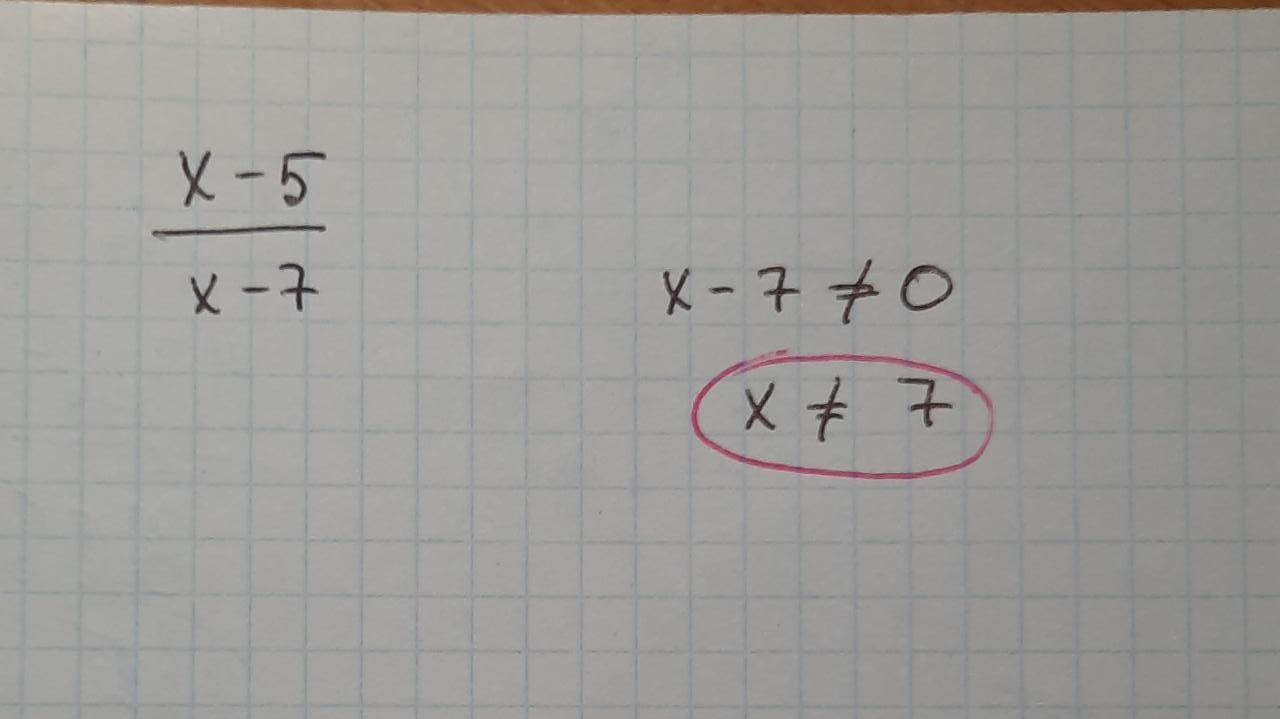 x - 5
x - 7
x - 7 ≠ 0
x ≠ 7